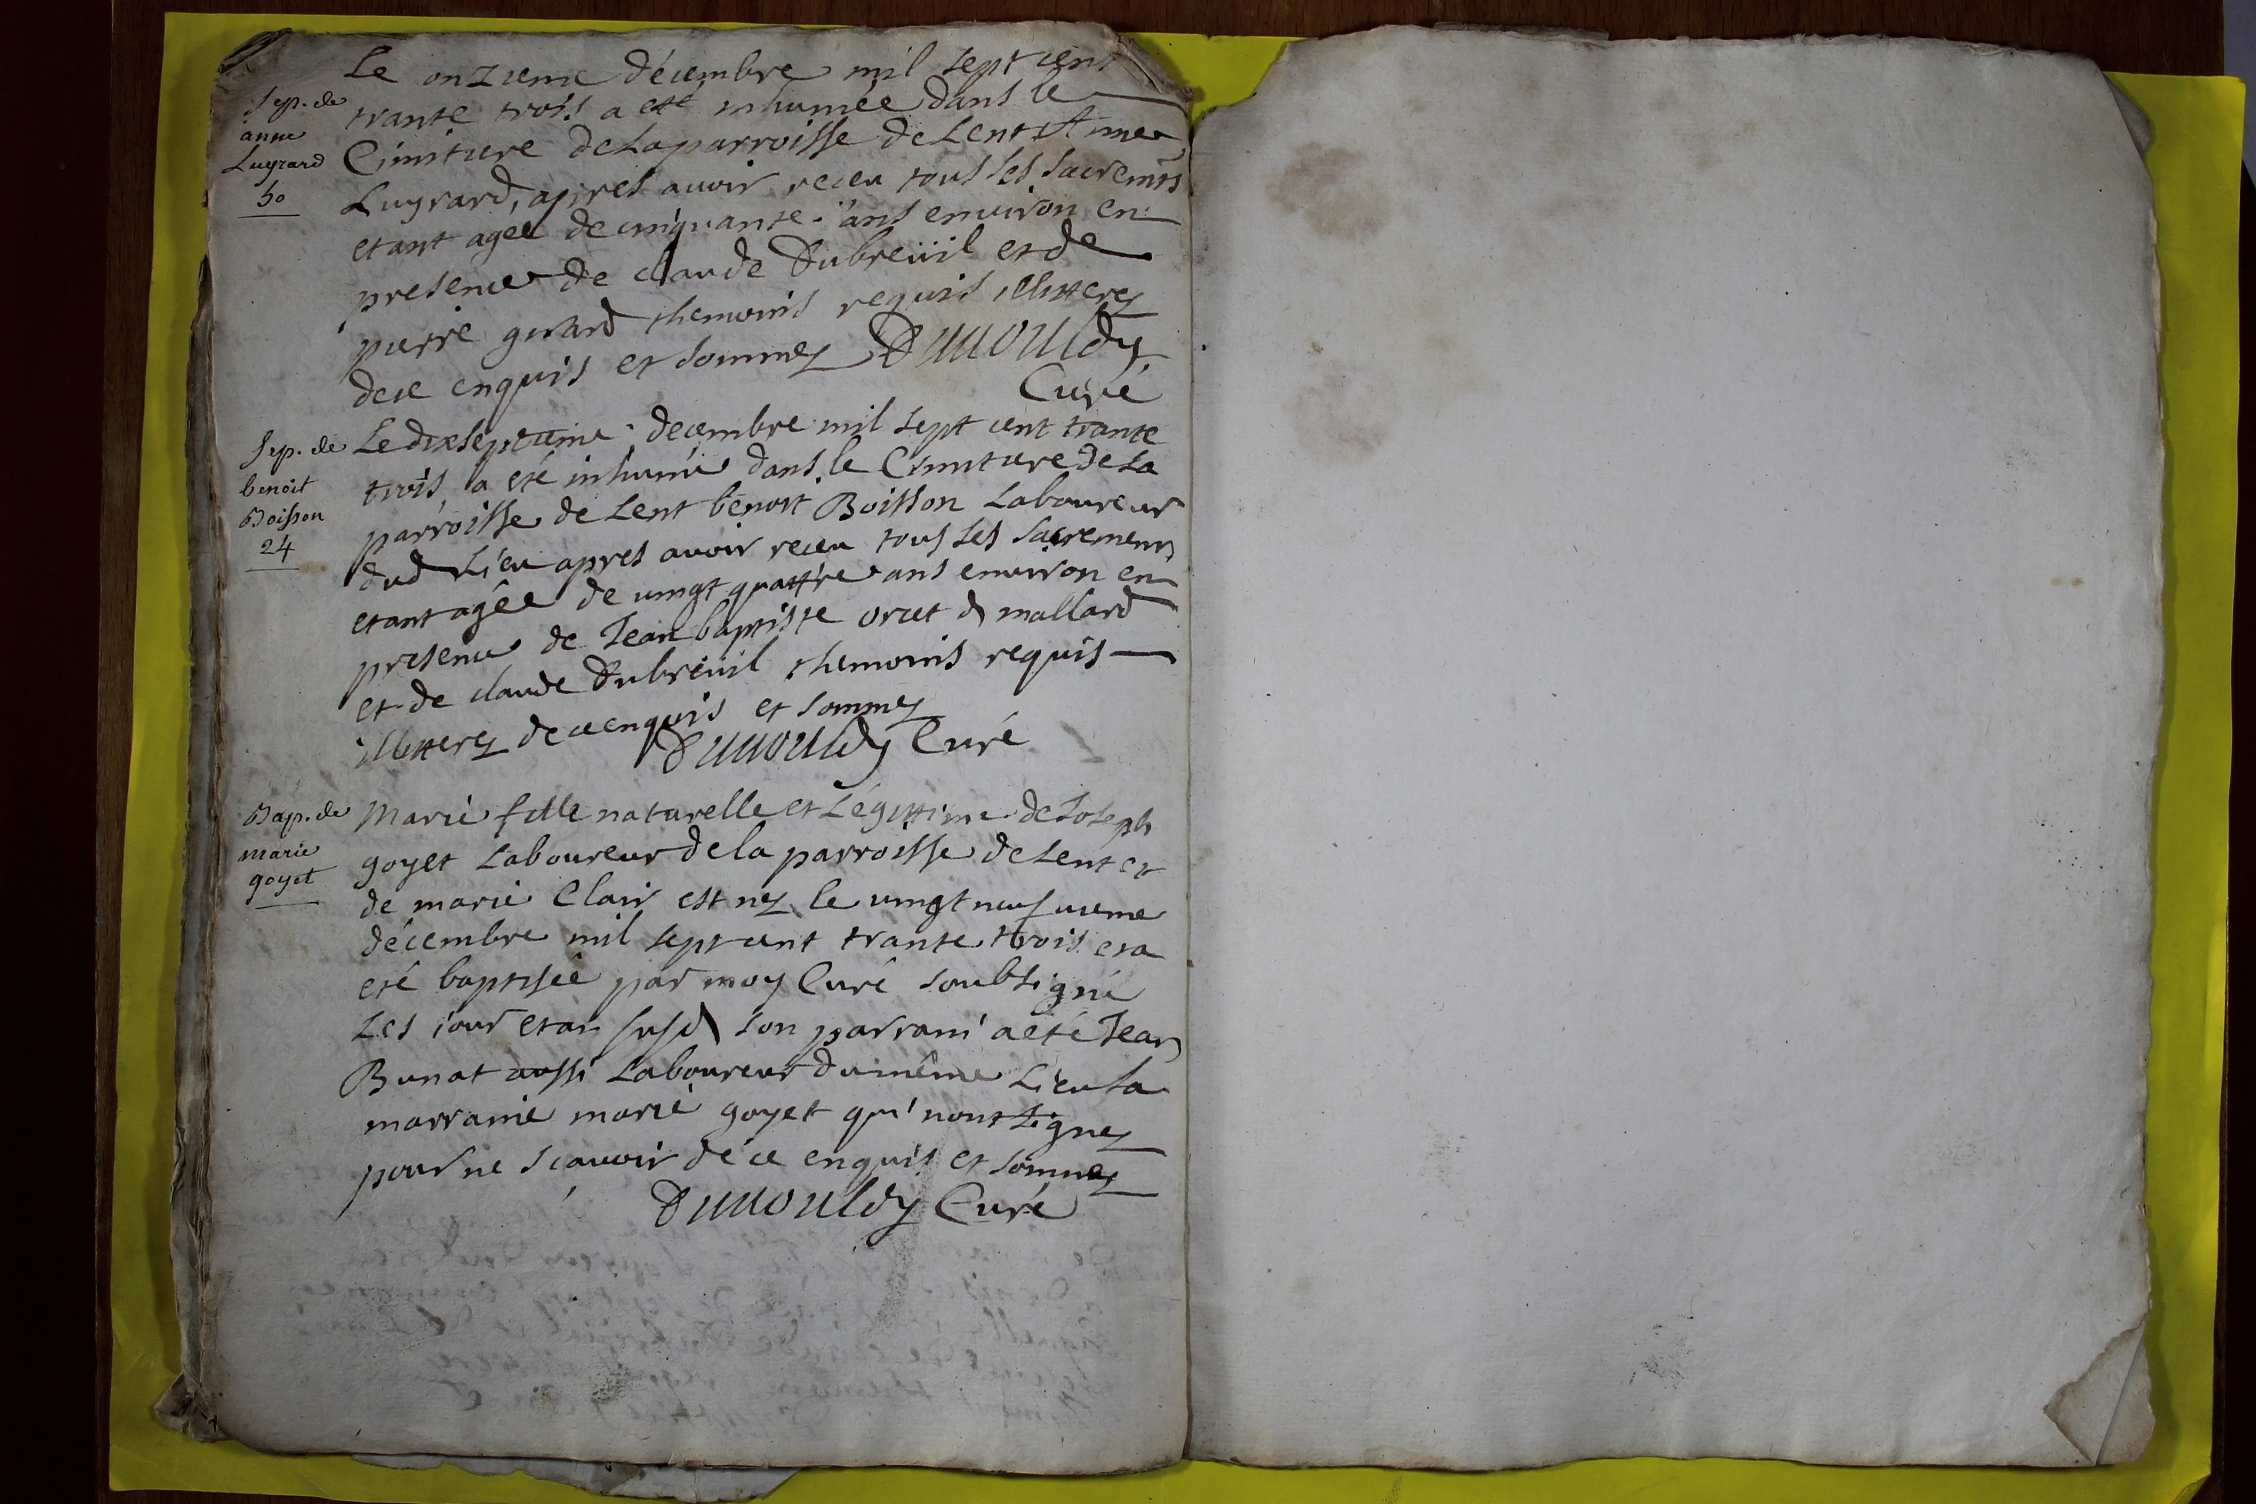 Sep. de
anne
Luyrard
50
Le onzieme décembre mil sept cent
trante trois a eté inhumée dans le
Cimitiere de la parroisse de Lent Anne
Luyrard, apres avoir receu tous les sacremts
etant agée de cinquante ans environ en
presence de claude Dubreüil et de
pierre girard themoins requis illitterez
dece enquis et sommez Dunouldy
Curé
Sep. de
benoit
Boisson
24
Le dixseptieme decembre mil sept cent trante
trois a eté inhumé dans le Cimitiere de La
parroisse de Lent benoit Boisson Laboureur
dud Lieu apres avoir receu tous les sacrements
etant agée de vingt quattre ans environ en
presence de Jean baptiste orcet d mallard
et de claude Dubreüil themoins requis
illitterez de ce enquis et sommez
Dunouldy Curé
Bap. de
marie
goyet
Marie fille naturelle et Légittime de Joseph
goyet Laboureur de la parroisse de Lent et
de marie Clair est nez le vingt neufvieme
décembre mil sept cent trante trois et a
eté baptisée par moy Curé soubsigné
Les jour et an susd son parrain a eté Jean
Bunat aussi Laboureur du même Lieu La
marraine marie goyet qui n'ont signez
pour ne scavoir de ce enquis et sommez
Dunouldy Curé